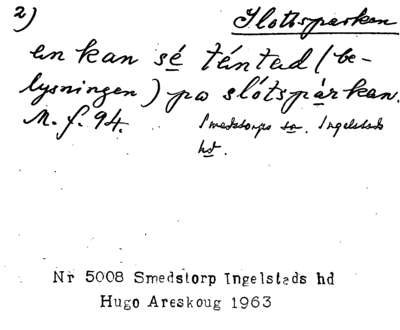 2)
Slottsparken
en kan sé téntad (be-
lysningen) po slótspárkan.
M. f. 94.
Smedstorps sn. Ingelstads
hd.
Nr 5008 Smedstorp Ingelstads hd
Hugo Areskoug 1963